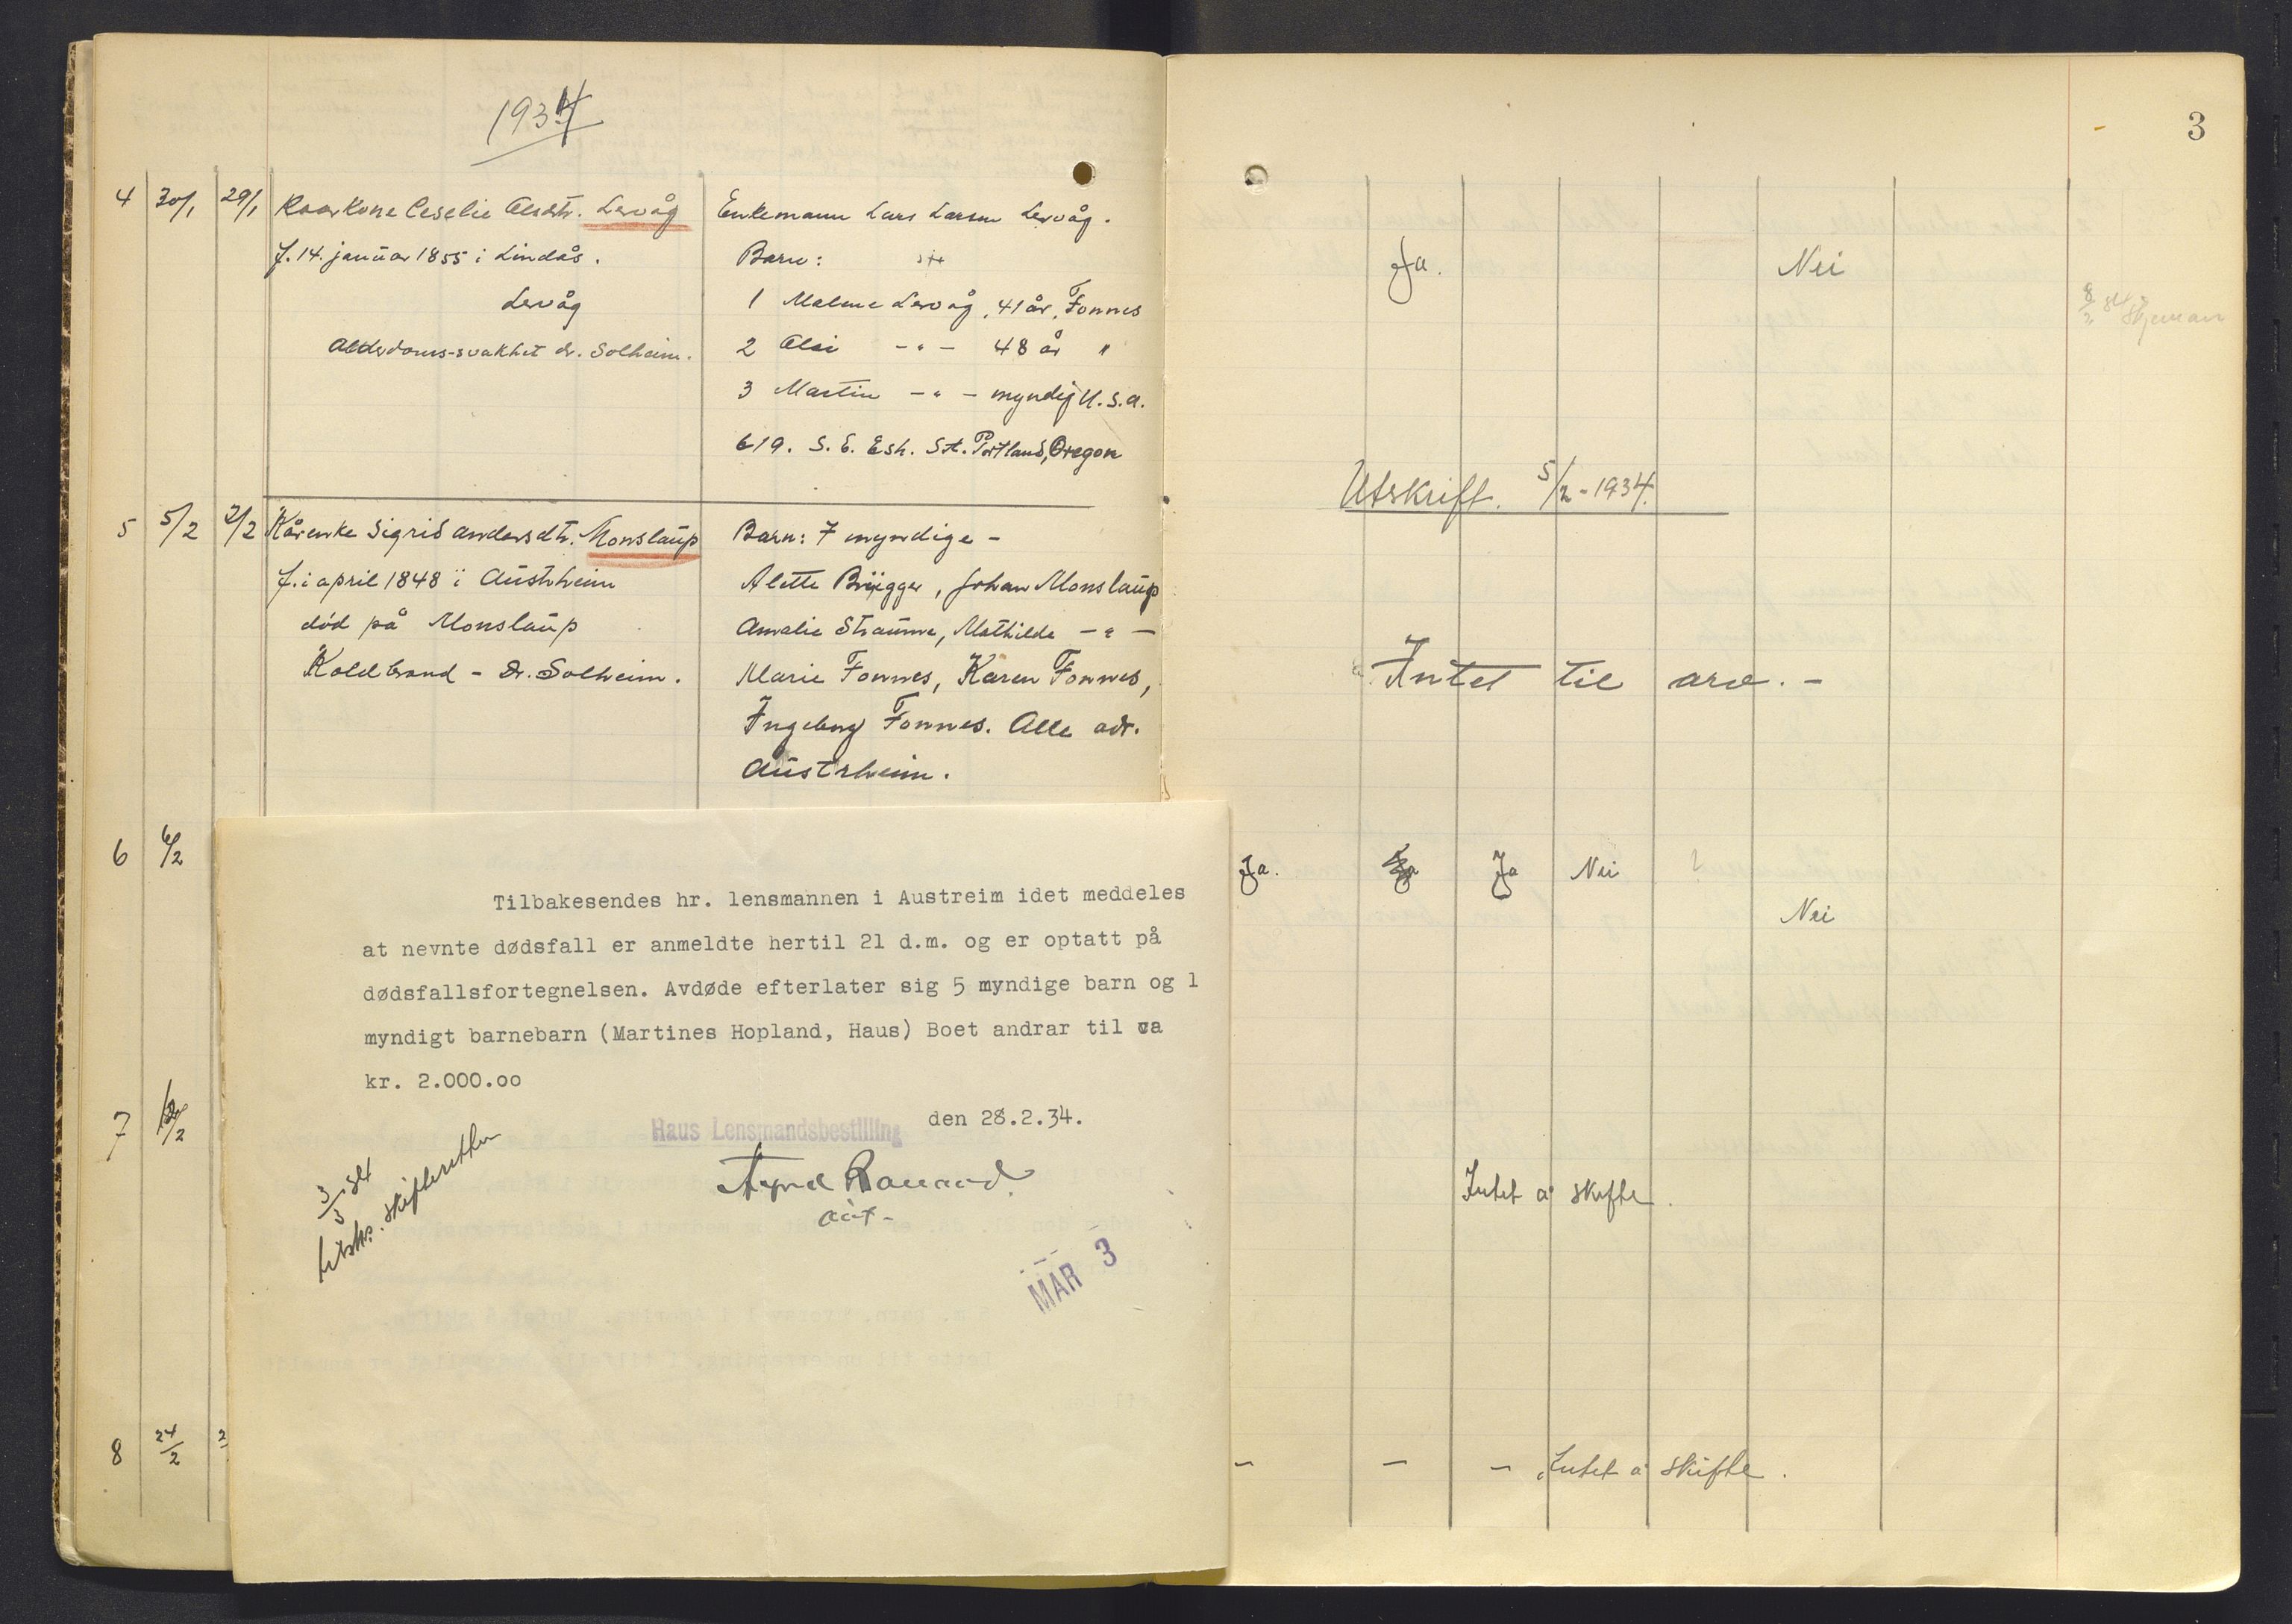 1934
4 30/1 29/1 Kaarkone Ceselie Olsdtr. Lervåg
f. 14. januar 1855 i Lindås.
Lervåg
Alderdoms-svakhet dr. Solheim.
Enkemann Lars Larsen Lervåg.
Barn:
1 Malene Lervåg, 41 år, Fonnes
2 Olai -"- 48 år "
3 Martin -"- myndig U.S.A.
619. S. E. Esh. St. Portland, Oregon
5 5/2 2/2 Kårenke Sigrid Andersdtr. Monslaup
f. i april 1848 i Austrheim
død på Monslaup
Koldbrand - Dr. Solheim.
Barn: 7 myndige -
Alette Brügger, Johan Monslaup
Amalie Straume, Mathilde -"-
Marie Fonnes, Karen Fonnes,
Ingeborg Fonnes. Alle adr.
Austrheim.
6 6/2
7
8 24/2 2
Tilbakesendes hr. lensmannen i Austreim idet meddeles
at nevnte dødsfall er anmeldte hertil 21 d.m. og er optatt på
dødsfallsfortegnelsen. Avdøde efterlater sig 5 myndige barn og 1
myndigt barnebarn (Martines Hopland, Haus) Boet andrar til ca
kr. 2.000.oo
den 28.2.34.
Haus Lensmandsbestilling
aut-
3/3 34
Utskr. skifteretten
MAR 3
3
Ja. Nei
8/2 34
Utskrift. 5/2-1934.
Intet til arv. -
Ja. Ja Nei ?
Nei
Intet å skifte.
- - - Intet å skifte.